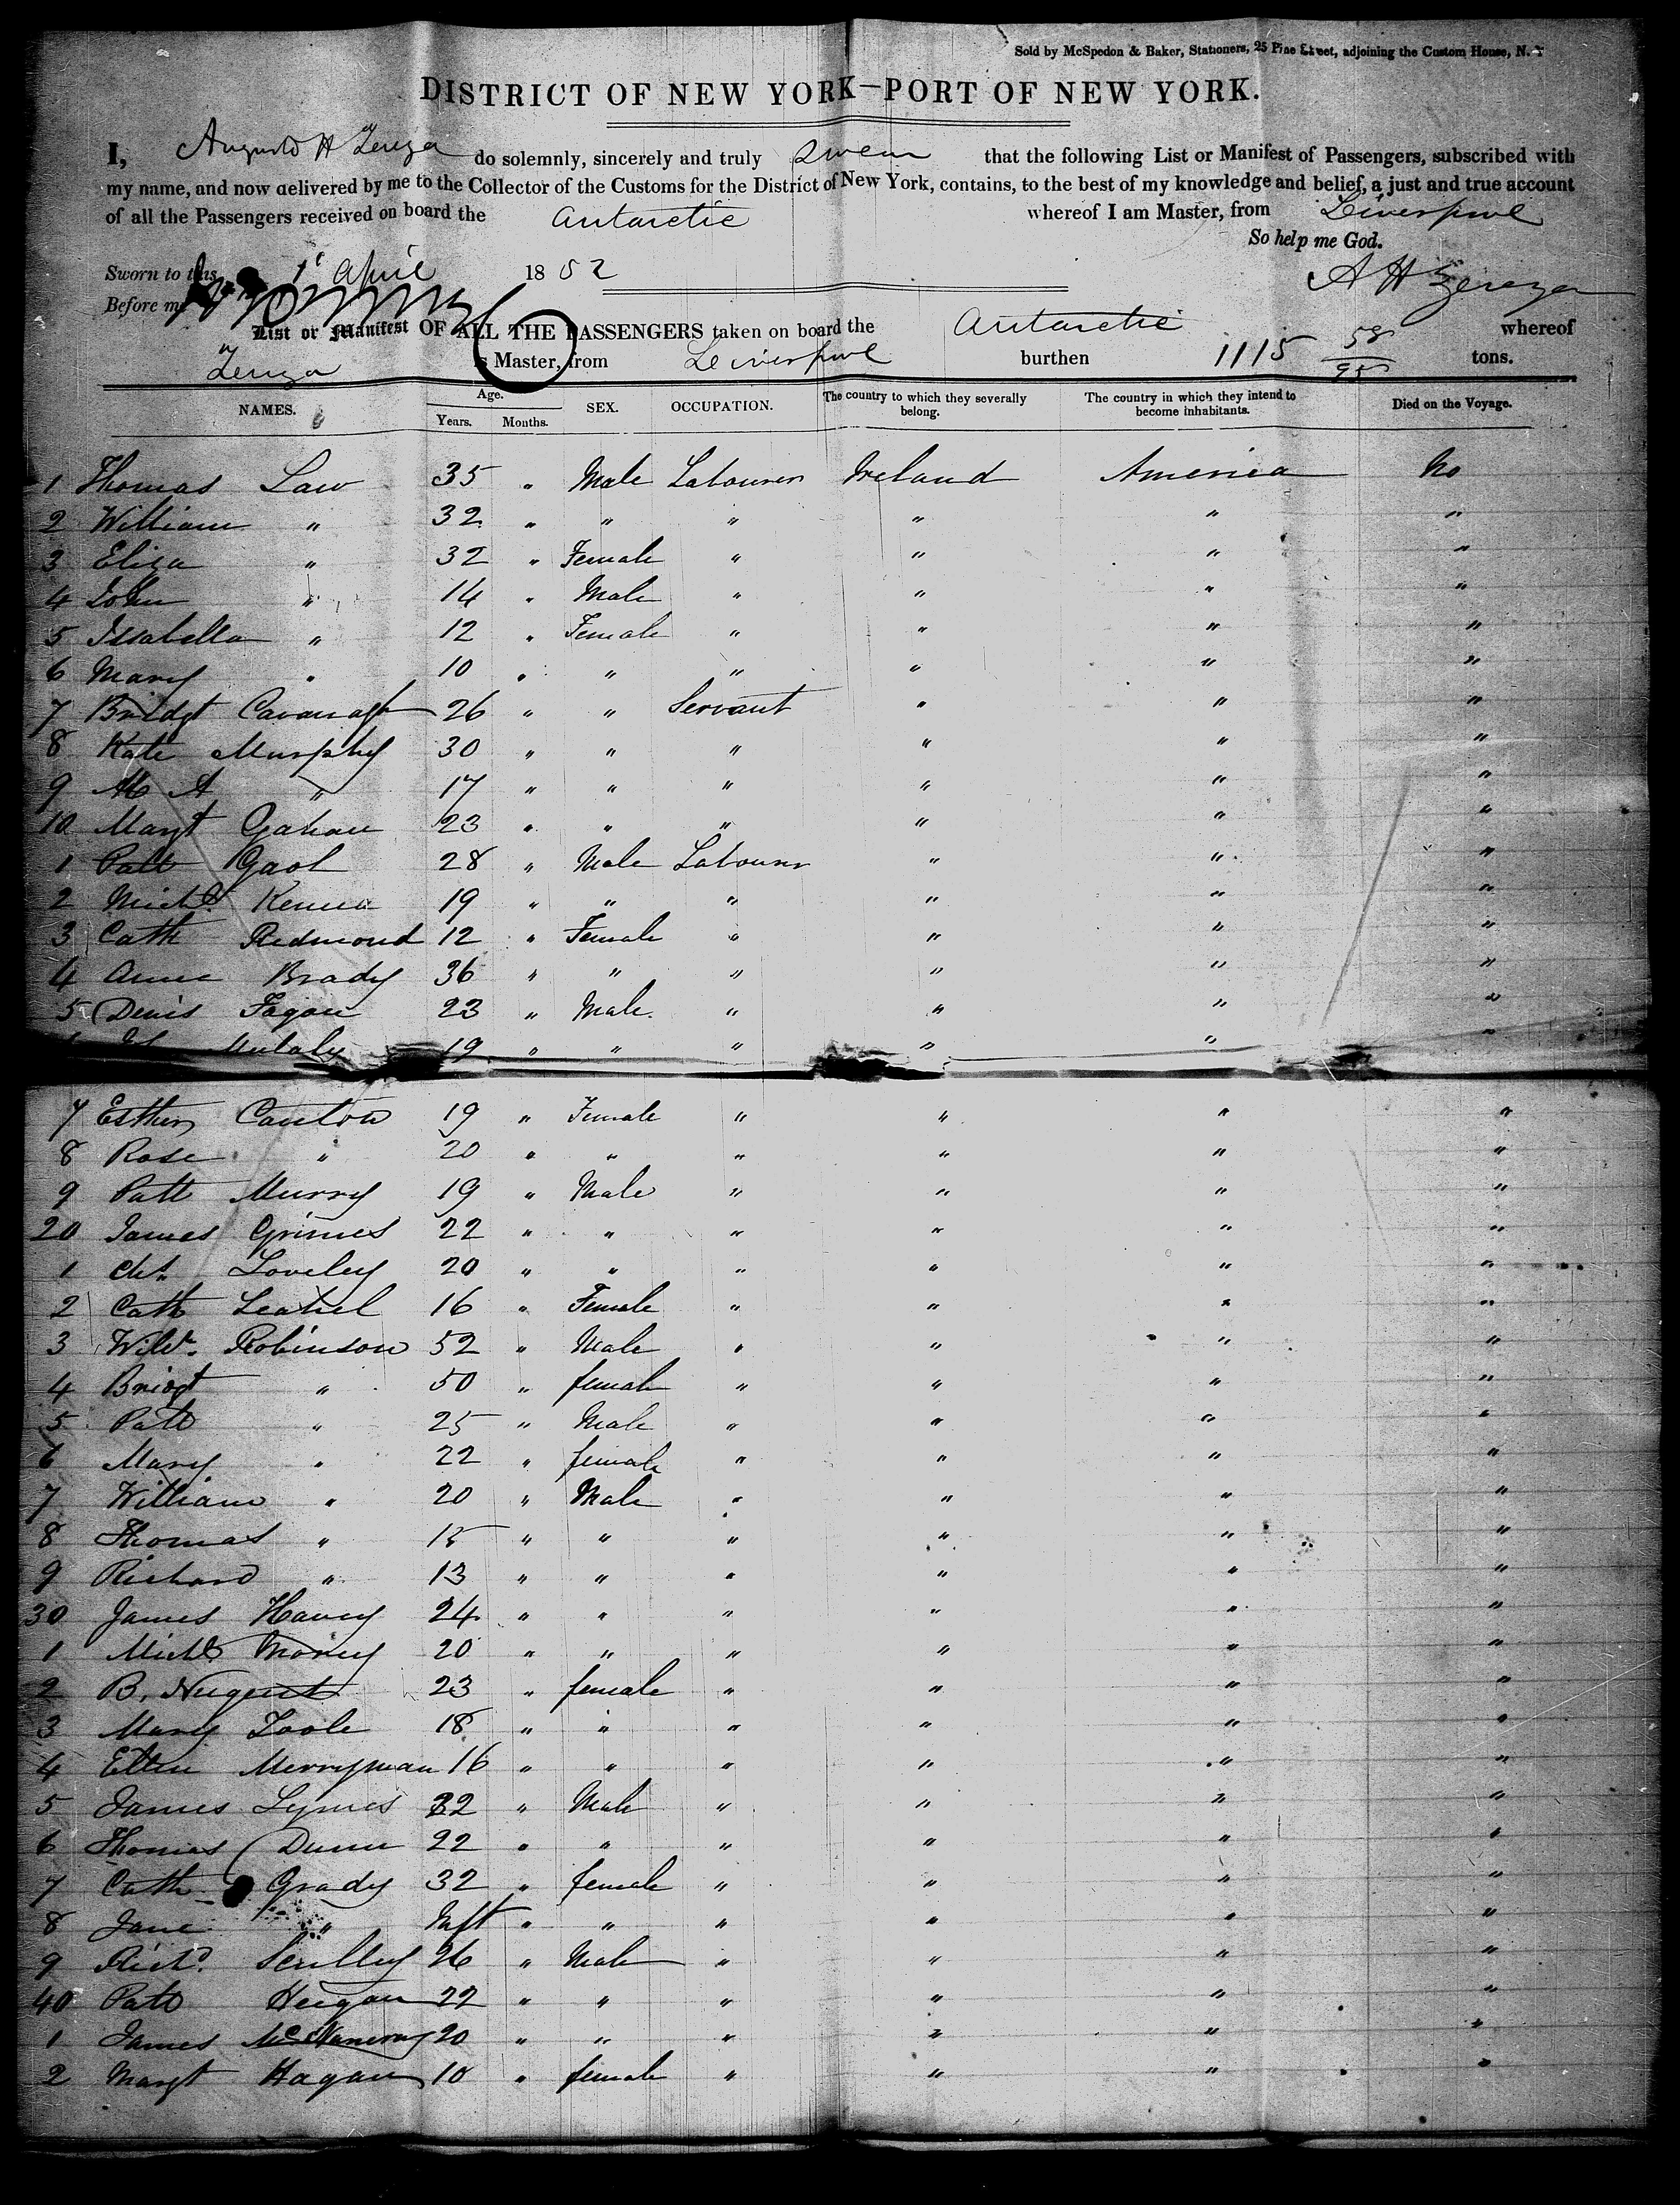 Sold by McSpedon & Baker, Stationers, 25 Pine Street, adjoining the Custom House, N. Y
DISTRICT OF NEW YORK—PORT OF NEW YORK.
I, Augusto H Zerega do solemnly, sincerely and truly swear that the following List or Manifest of Passengers, subscribed with
my name, and now delivered by me to the Collector of the Customs for the District of New York, contains, to the best of my knowledge and belief, a just and true account
of all the Passengers received on board the Antarctic whereof I am Master, from Liverpool
So help me God.
Sworn to this 1t April 1852 A H Zerega
Before me
List or Manifest OF ALL THE PASSENGERS taken on board the Antarctic whereof
Zerega is Master, from Liverpool burthen 1115 58/95 tons.
NAMES. Age. Years. Months. SEX. OCCUPATION. The country to which they severally belong. The country in which they intend to become inhabitants. Died on the Voyage.
1 Thomas Law 35 " Male Labourer Ireland America No
2 William " 32 " " " " " "
3 Eliza " 32 " Female " " " "
4 John " 14 " Male " " " "
5 Issabella " 12 " Female " " " "
6 Mary " 10 " " " " " "
7 Bridgt Cavanagh 26 " " Servant " " "
8 Kate Murphy 30 " " " " " "
9 M A " 17 " " " " " "
10 Margt Gahan 23 " " " " " "
1 Patt Gaol 28 " Male Labourer " " "
2 Michl Kenna 19 " " " " " "
3 Cath Redmond 12 " Female " " " "
4 Anne Brady 36 " " " " " "
5 Denis Fagan 23 " Male " " " "
19 " " " " " "
7 Esther Canton 19 " Female " " " "
8 Rose " 20 " " " " " "
9 Patt Murry 19 " Male " " " "
20 James Grimes 22 " " " " " "
1 Loveley 20 " " " " " "
2 Cath 16 " Female " " " "
3 Willm Robinson 52 " Male " " " "
4 Bridgt " 50 " female " " " "
5 Patt " 25 " Male " " " "
6 Mary " 22 " female " " " "
7 William " 20 " Male " " " "
8 Thomas " 15 " " " " " "
9 Richard " 13 " " " " " "
30 James Havey 24 " " " " " "
1 Michl Morey 20 " " " " " "
2 B. Nugent 23 " female " " " "
3 Mary Toole 18 " " " " " "
4 Ellen Merryman 16 " " " " " "
5 James Lymes 32 " Male " " " "
6 Thomas Dunn 22 " " " " " "
7 Cath Grady 32 " female " " " "
8 Jane " Inft " " " " " "
9 Richd Scully 26 " Male " " " "
40 Patt Heegan 22 " " " " " "
1 James McNamany 20 " " " " " "
2 Margt Hagan 10 " female " " " "